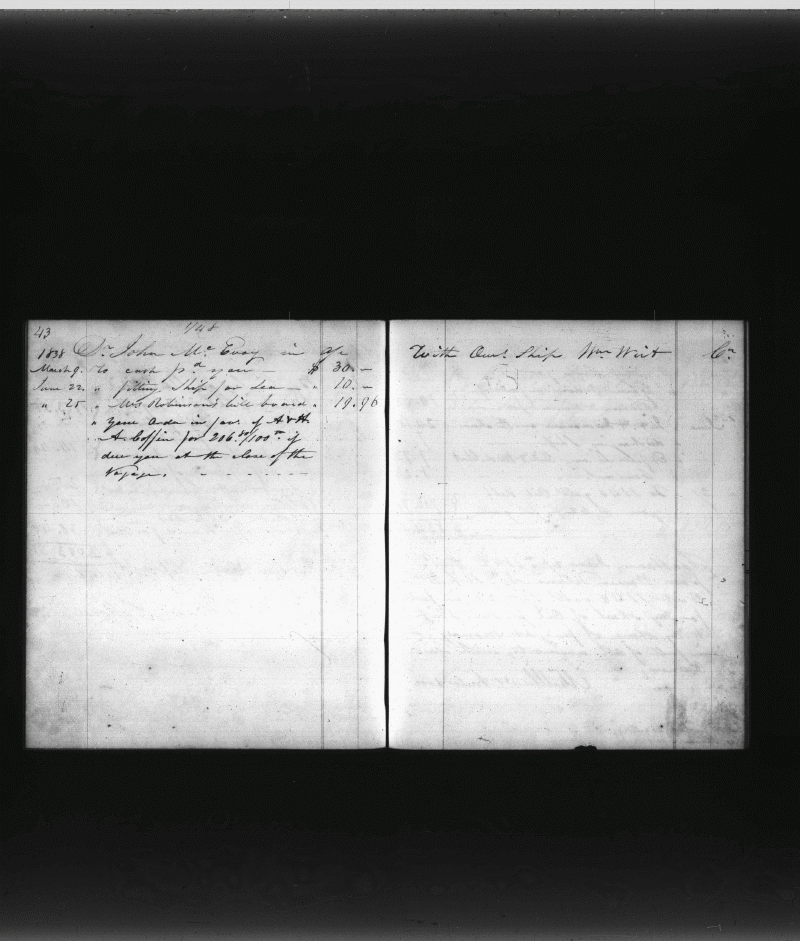 43
1/48
1838 Dr John Mc Evoy in a/c
March 9. To cash pd you — $ 30. —
June 22. " fitting Ship for Sea — " 10. —
" 25 " Mrs Robinson's bill board " 19.96
" your order in fav. of A & H.
A. Coffin for 206. /100 if
due you at the close of the
Voyage. - - - - - -
With Ship Wm Wirt Cr